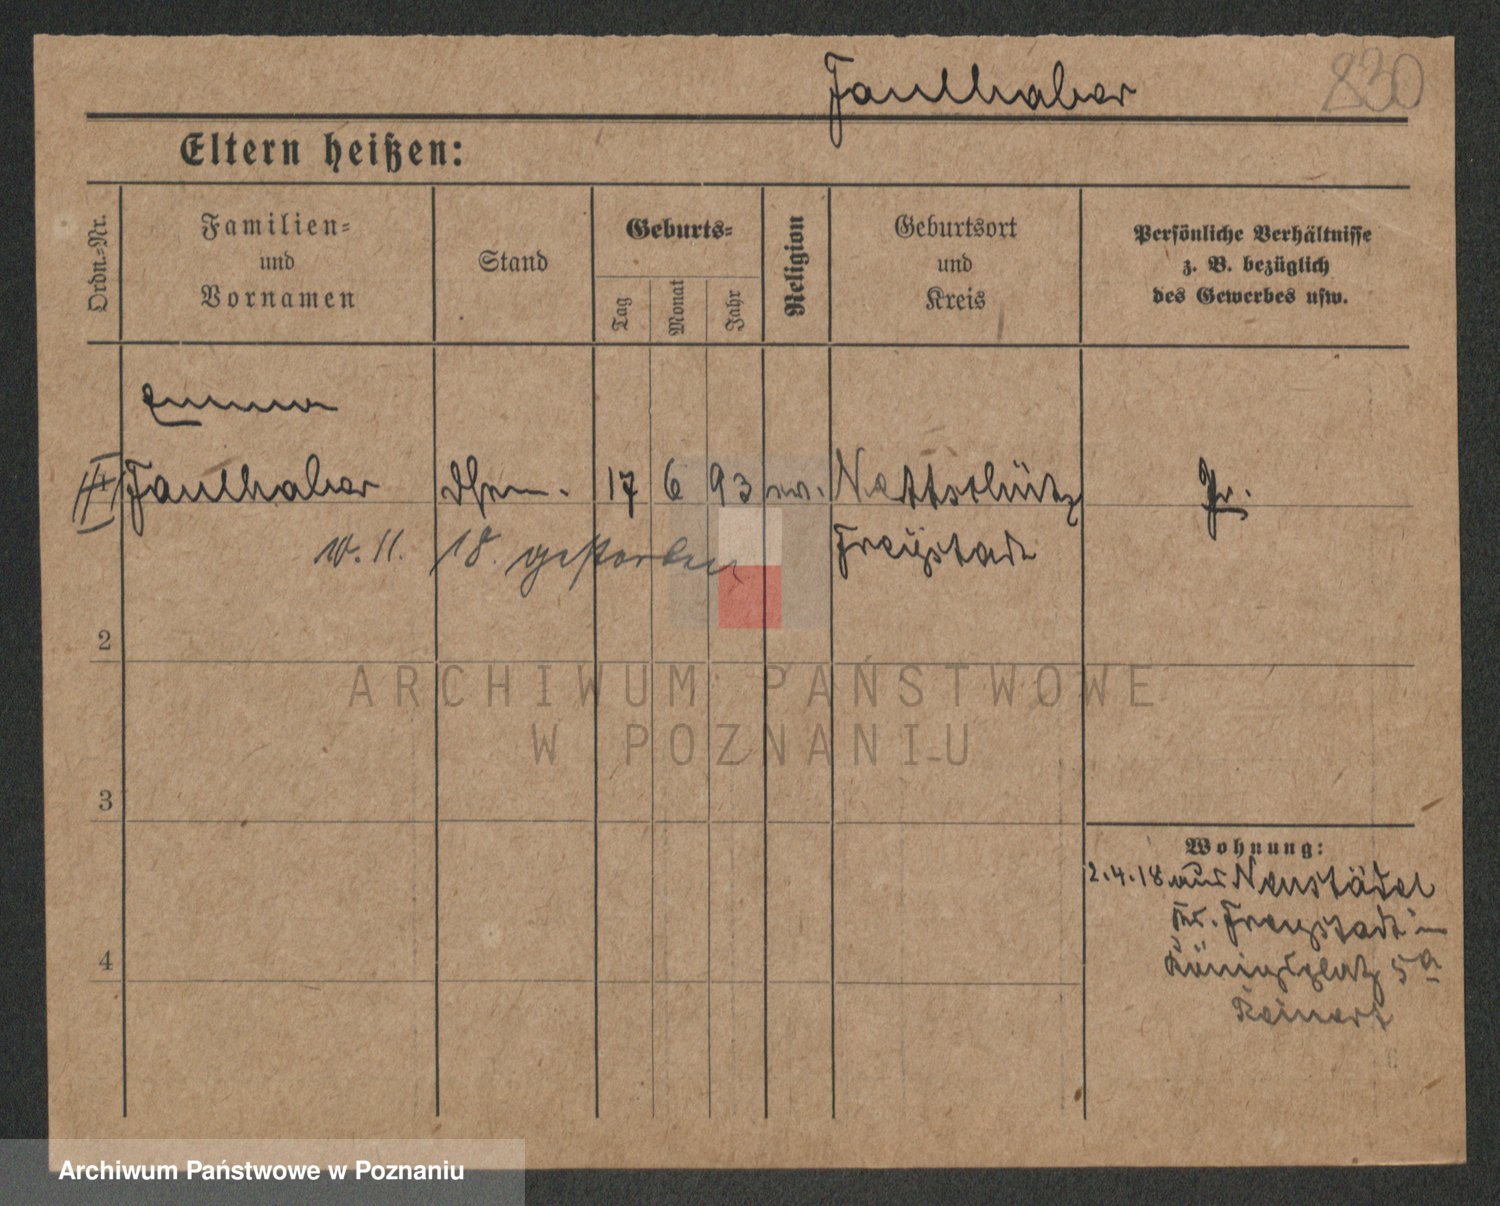 Faulhaber
830
Eltern heißen:
Ordn.-Nr.
Familien-
und
Vornamen
Stand
Geburts-
Tag
Monat
Jahr
Religion
Geburtsort
und
Kreis
Persönliche Verhältnisse
z. B. bezüglich
des Gewerbes usw.
Emma
Faulhaber 17 6 93 ev. Nettschütz Pr.
11. 18. gestorben Freystadt
2
ARCHIWUM PAŃSTWOWE
W POZNANIU
3
Wohnung:
2.4.18 aus Neustädel
Kr. Freystadt in
4
Königsplatz 5a
Reinert
Archiwum Państwowe w Poznaniu